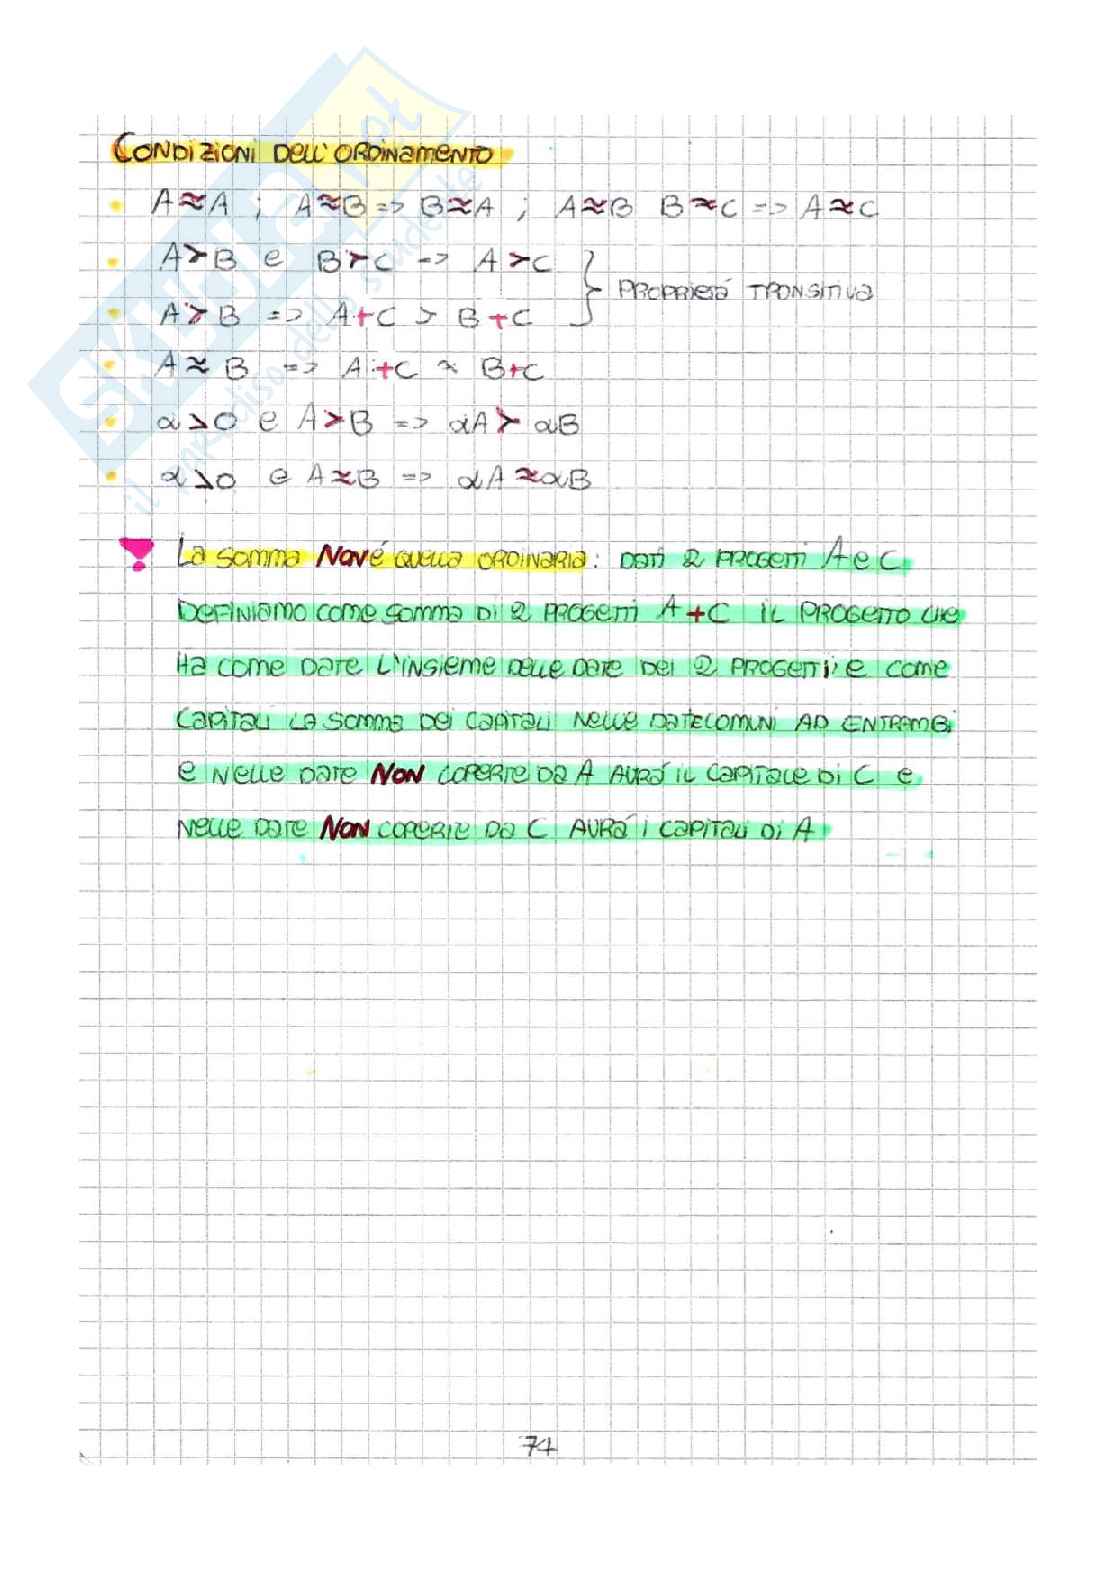 CONDIZIONI DELL'ORDINAMENTO
• A≈A ; A≈B => B≈A ; A≈B B≈C => A≈C
• A≻B e B≻C => A≻C
} PROPRIETÁ TRANSITIVA
• A≻B => A+C > B+C
• A≈B => A+C ≈ B+C
• α>0 e A≻B => αA≻αB
• α>0 e A≈B => αA≈αB
! La somma NON é quella ORDINARIA: DATI 2 PROGETTI A e C
DEFINIAMO come somma DI 2 PROGETTI A+C IL PROGETTO CHE
Ha come DATE L'INSIEME DELLE DATE DEI 2 PROGETTI; e come
CAPITALI LA SOMMA DEI CAPITALI NELLE DATE COMUNI AD ENTRAMBI
e NELLE DATE NON COPERTE DA A AVRÁ IL CAPITALE DI C e
NELLE DATE NON COPERTE DA C AVRÁ I CAPITALI DI A
74
SKUOLA.net
il paradiso dello studente